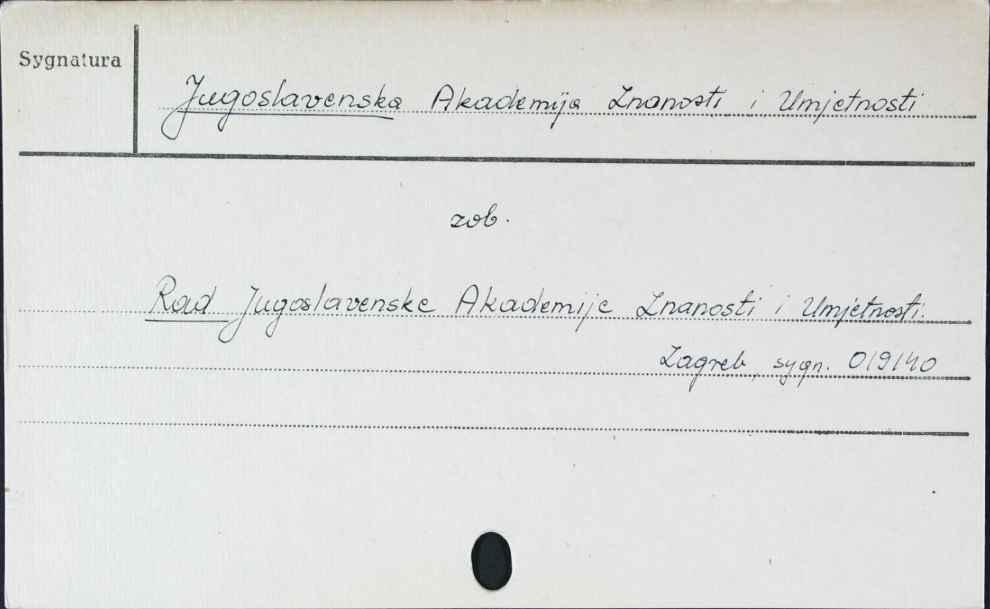 Sygnatura
Jugoslavenska Akademija Znanosti i Umjetnosti
zob.
Rad Jugoslavenske Akademije Znanosti i Umjetnosti.
Zagreb, sygn. 019140